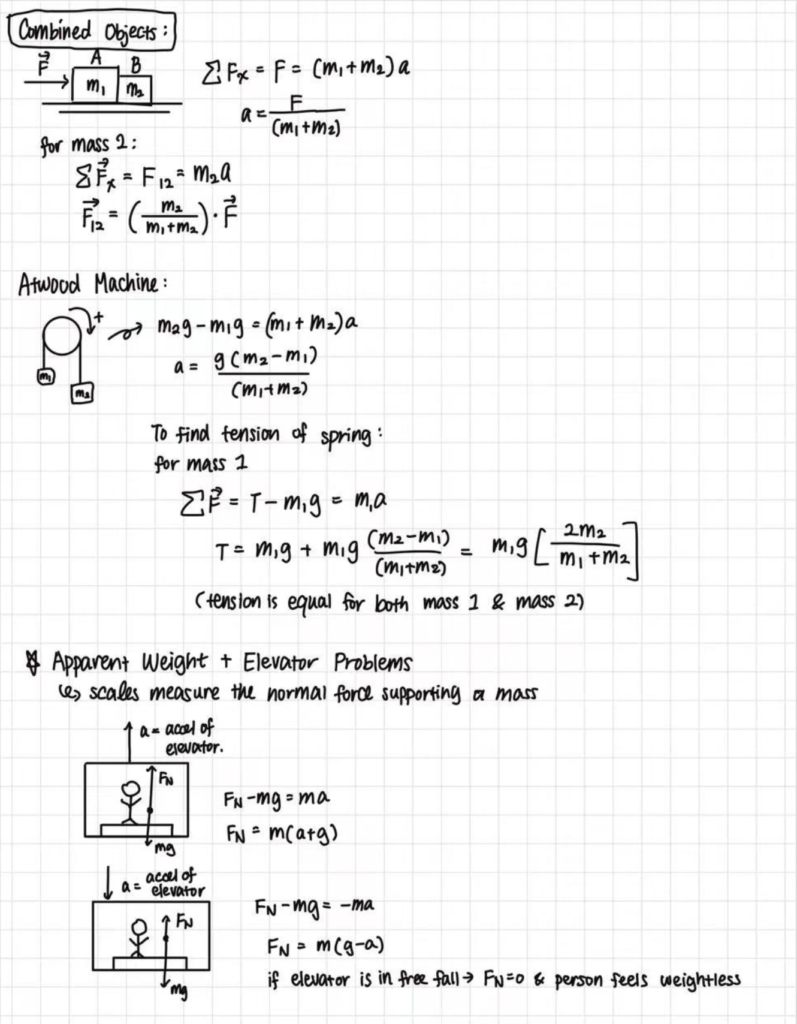 Combined Objects:
A B
F⃗ m₁ m₂ ΣFₓ = F = (m₁+m₂)a
a = F/(m₁+m₂)
for mass 2:
ΣF⃗ₓ = F₁₂ = m₂a
F⃗₁₂ = (m₂/(m₁+m₂)) · F⃗
Atwood Machine:
+
m₂g - m₁g = (m₁+m₂)a
a = g(m₂-m₁)/(m₁+m₂)
m₁
m₂
To find tension of spring:
for mass 1
ΣF⃗ = T - m₁g = m₁a
T = m₁g + m₁g (m₂-m₁)/(m₁+m₂) = m₁g [2m₂/(m₁+m₂)]
(tension is equal for both mass 1 & mass 2)
Apparent Weight + Elevator Problems
↳ scales measure the normal force supporting a mass
a = accel of
elevator.
F_N
F_N - mg = ma
F_N = m(a+g)
mg
a = accel of
elevator
F_N
F_N - mg = -ma
F_N = m(g-a)
mg
if elevator is in free fall → F_N=0 & person feels weightless